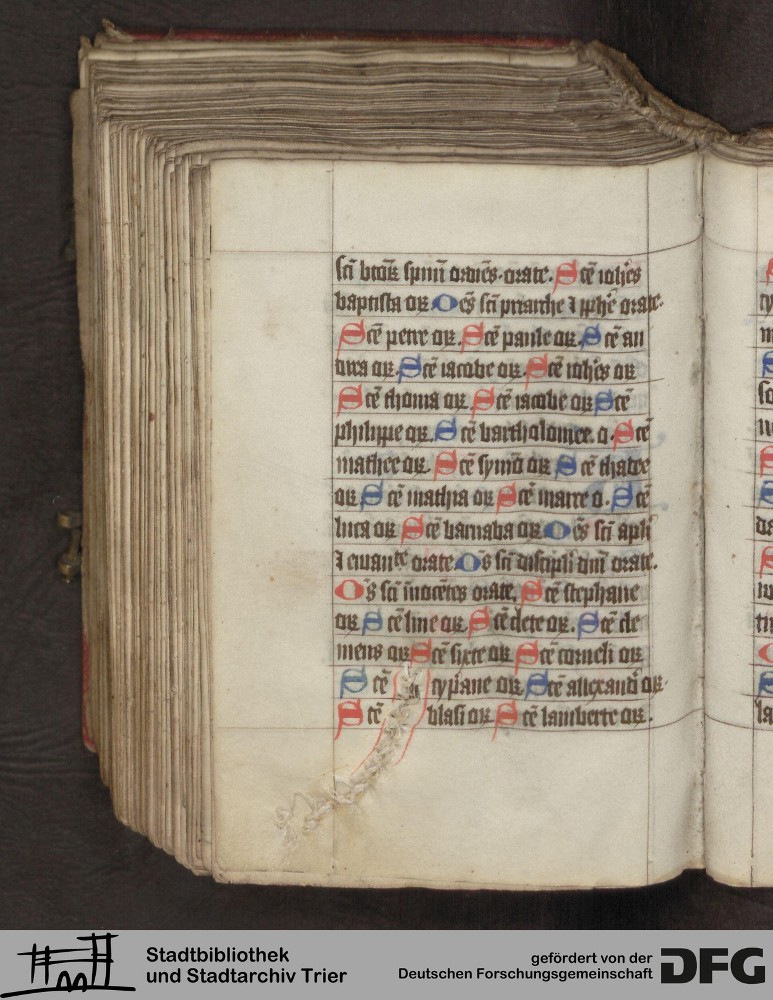 sc̄i btōꝝ spūū ordīēs. orate. Scē ioħes
baptista oꝝ Oēs sc̄i pr̄iarche ⁊ ꝓphē orate.
Scē petre oꝝ. Scē paule oꝝ. Scē an
drea oꝝ. Scē iacobe oꝝ. Scē ioħes oꝝ
Scē thoma oꝝ. Scē iacobe oꝝ Scē
philippe oꝝ. Scē bartholomee. o. Scē
mathee oꝝ. Scē symō oꝝ Scē thadee
oꝝ Scē mathia oꝝ Scē marce o. Scē
luca oꝝ Scē barnaba oꝝ Oēs sc̄i apl̄i
⁊ ewan̄te orate. Oēs sc̄i discip̄li dn̄i orate.
Oēs sc̄i īnocētes orate. Scē stephane
oꝝ. Scē line oꝝ Scē clete oꝝ. Scē cle
mens oꝝ Scē sixte oꝝ Scē corneli oꝝ
Scē cypriane oꝝ. Scē allexand̄ oꝝ.
Scē blasi oꝝ Scē lamberte oꝝ.
Stadtbibliothek
und Stadtarchiv Trier
gefördert von der
Deutschen Forschungsgemeinschaft
DFG